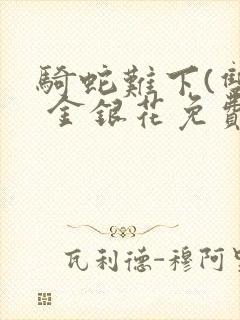 騎蛇難下(雙
金銀花免費
瓦利德-穆阿